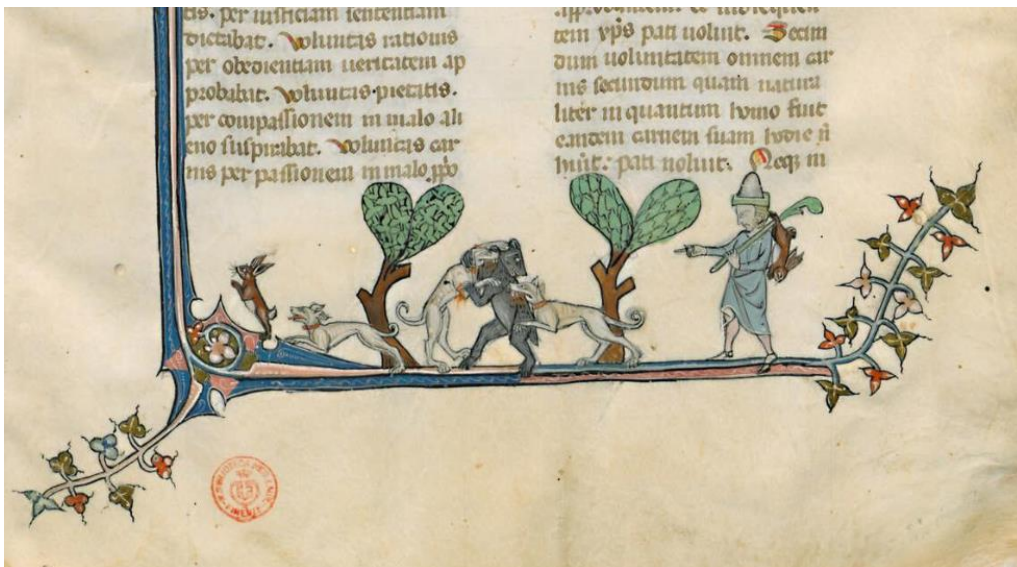 tis. per iusticiam sententiam
dictabat. Voluntas rationis
per obedientiam ueritatem ap
probabat. Voluntas pietatis.
per compassionem in malo ali
eno suspirabat. Voluntas car
nis per passionem in malo ppo
tem xp̄s pati uoluit. Secun
dum uoluntatem omnem car
nis secundum quam natura
liter in quantum homo fuit
carnem suam
pati noluit. Neq; in